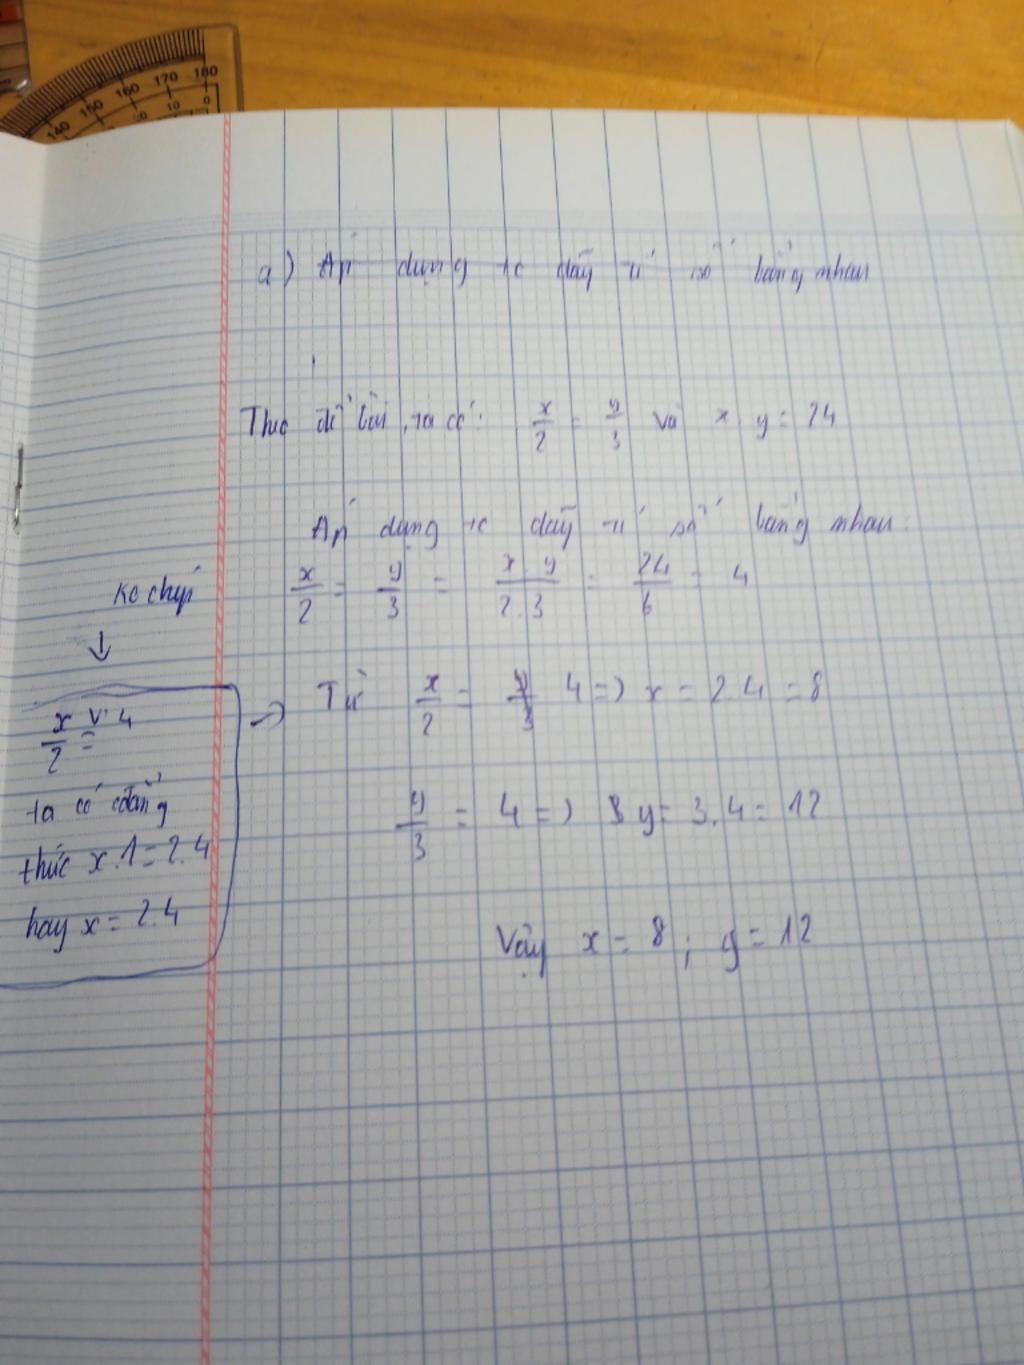 140 150 160 170 180
10 0
a) Áp dụng tc dãy tỉ số bằng nhau
Theo đề bài, ta có: x/2 = y/3 và x y = 24
Áp dụng tc dãy tỉ số bằng nhau:
x/2 = y/3 = x y/2.3 = 24/6 = 4
Từ x/2 = 4 => x = 2.4 = 8
y/3 = 4 => y = 3.4 = 12
Vậy x = 8 ; y = 12
ko chép
↓
x/2 = 4
ta có đẳng
thức x.1 = 2.4
hay x = 2.4